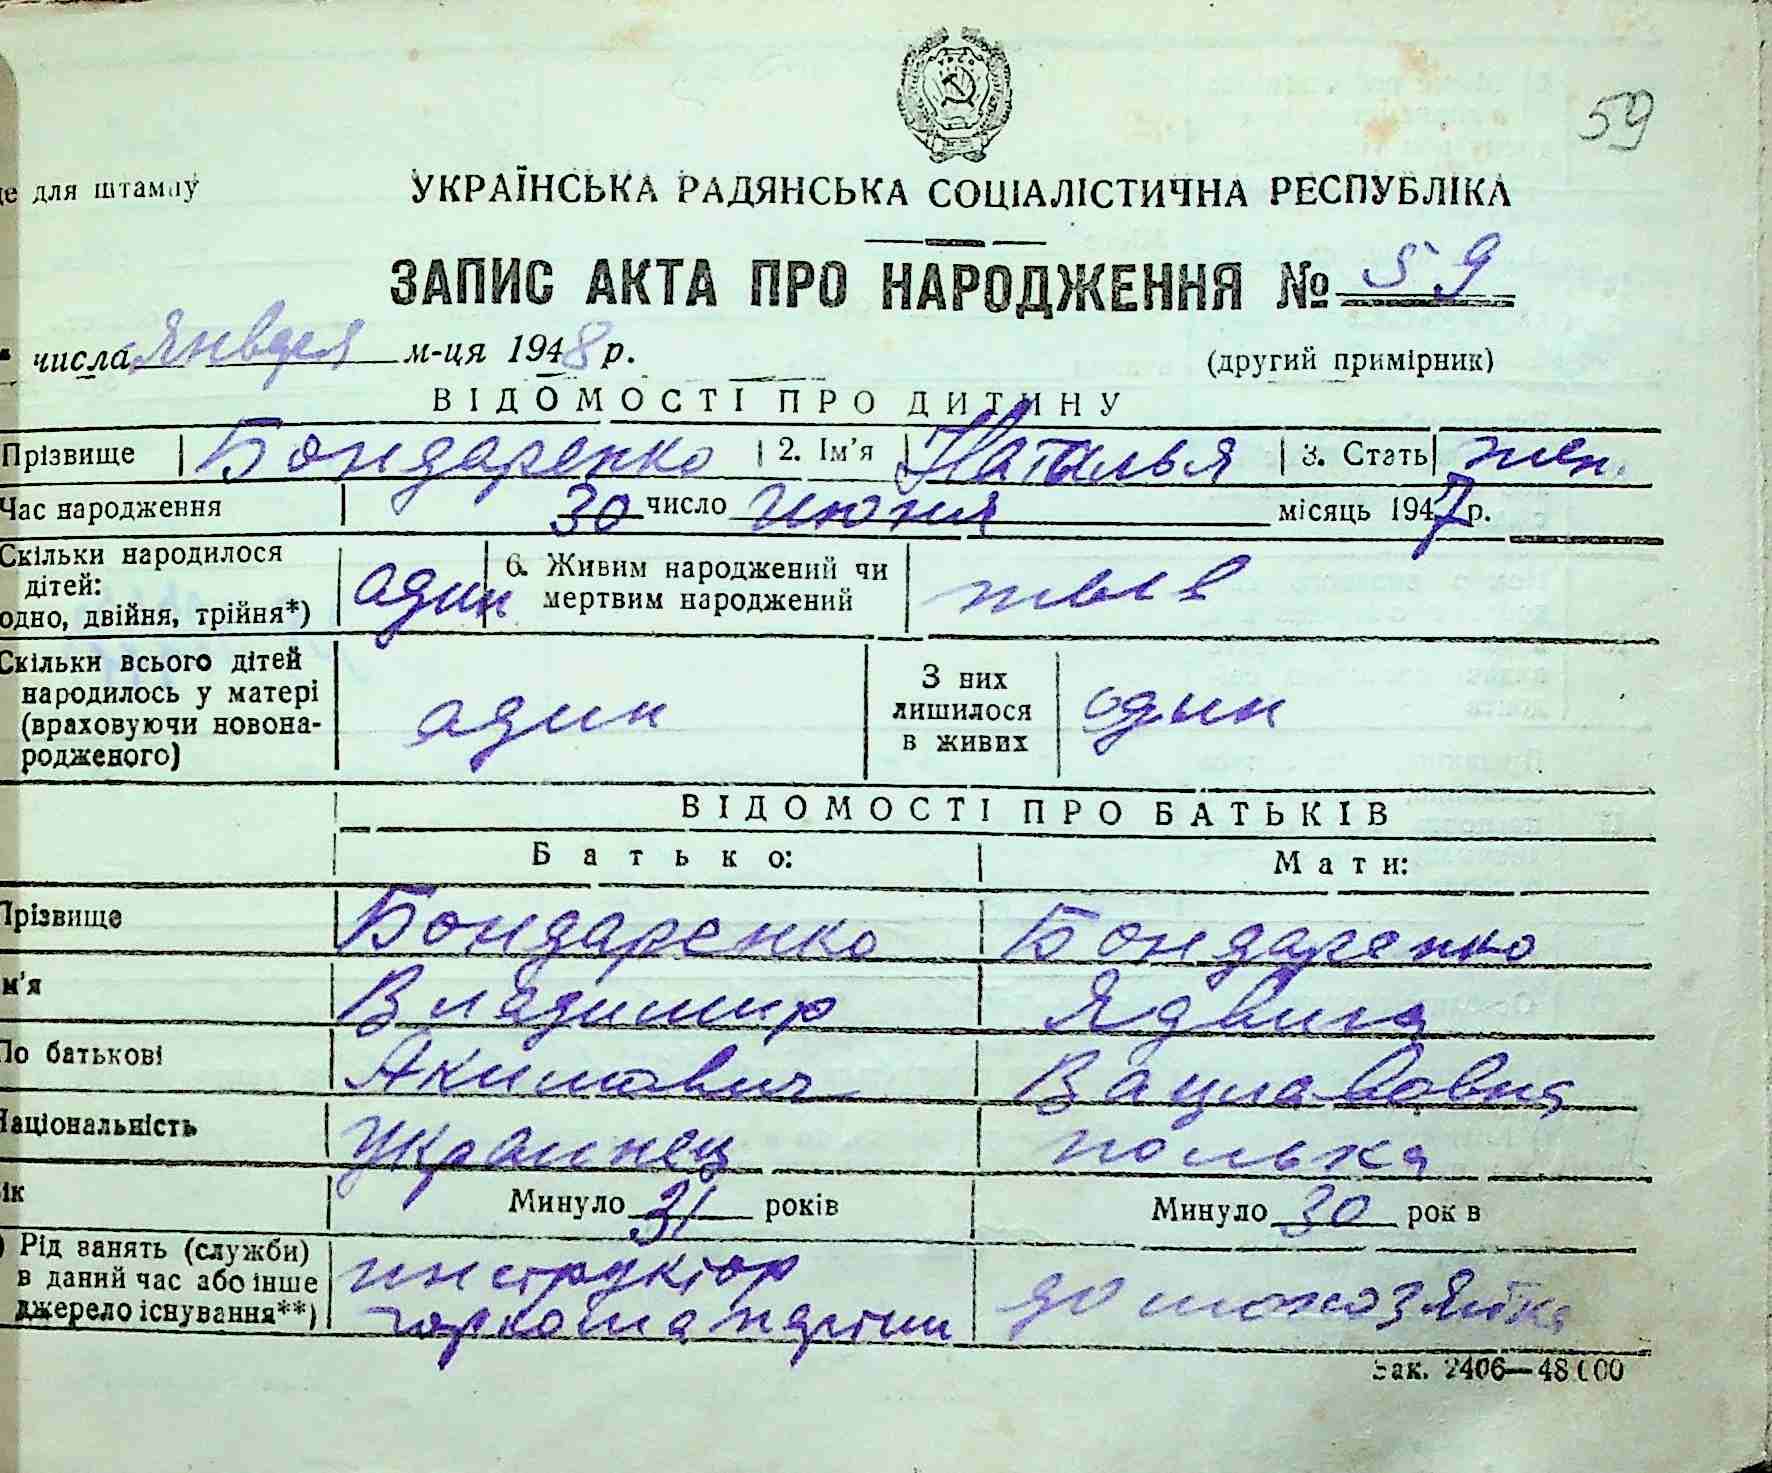 59
це для штампу
УКРАЇНСЬКА РАДЯНСЬКА СОЦІАЛІСТИЧНА РЕСПУБЛІКА
ЗАПИС АКТА ПРО НАРОДЖЕННЯ № 59
числа января м-ця 1948 р.
(другий примірник)
ВІДОМОСТІ ПРО ДИТИНУ
Прізвище Бондаренко 2. Ім'я Наталья 3. Стать жен.
Час народження 30 число июня місяць 1947 р.
Скільки народилося
дітей:
одно, двійня, трійня*) один 6. Живим народжений чи
мертвим народжений жив
Скільки всього дітей
народилось у матері
(враховуючи новона-
родженого) один З них
лишилося
в живих один
ВІДОМОСТІ ПРО БАТЬКІВ
Батько: Мати:
Прізвище Бондаренко Бондаренко
м'я Владимир Ядвига
По батькові Акимович Вацлавовна
Національність Украинец полька
ік Минуло 31 років Минуло 30 рок в
) Рід занять (служби)
в даний час або інше
джерело існування**) инструктор
горкома партии домохозяйка
Зак. 2406—48000